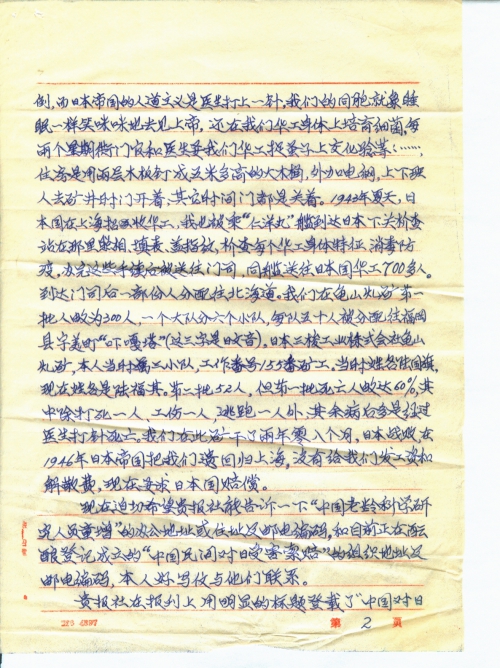 倒,而日本帝国的人道主义是医生打上一针,我们的同胞就象睡
眠一样笑咪咪地去见上帝,还在我们华工身体上培育细菌,每
两个星期待门官和医生要我们华工挖
住房是用两层木板钉成三米多高的大木棚,外加电网,上下班
人去矿井时门开着,其它时间门都是关着。1943年夏天,日
本国在上海招收华工,我也被乘“仁洋丸”船到达日本下关检查
站在那里照相、填表、盖指放,检查每个华工身体特征,消毒防
疫,办完这些手续后被送往门司,同船送往日本国华工700多人。
到达门司后一部份人分配往北海道。我们在龟山炭矿第一
批人数为300人,一个大队分六个小队,每队五十人被分配往福岡
县字美町“下嘎塔”(这三字是日文音)。日本三棱工业株式会社龟山
炭矿,本人当时属三小队,工作番号155番矿工。当时姓名陆国旗,
现在姓名是陆福其。第二批52人,但第一批死亡人数达60%,其
中除打死一人、工伤一人、逃跑一人外,其余病后多是打过
医生打针死亡。我们在此矿干了两年零八个月,日本战败,在
1946年日本帝国把我们遣回归上海,没有给我们发工资和
解散费,现在要求日本国赔偿。
现在迫切希望贵报社能告诉一下“中国老龄科学研
究人员童增”的办公地址或住址及邮电编码,和目前正在酝
酿登记成立的“中国民间对日受害索赔”的组织地址及
邮电编码,本人好写信与他们联系。
贵报社在报刊上用明显的标题登载了“中国对日
第 2 页